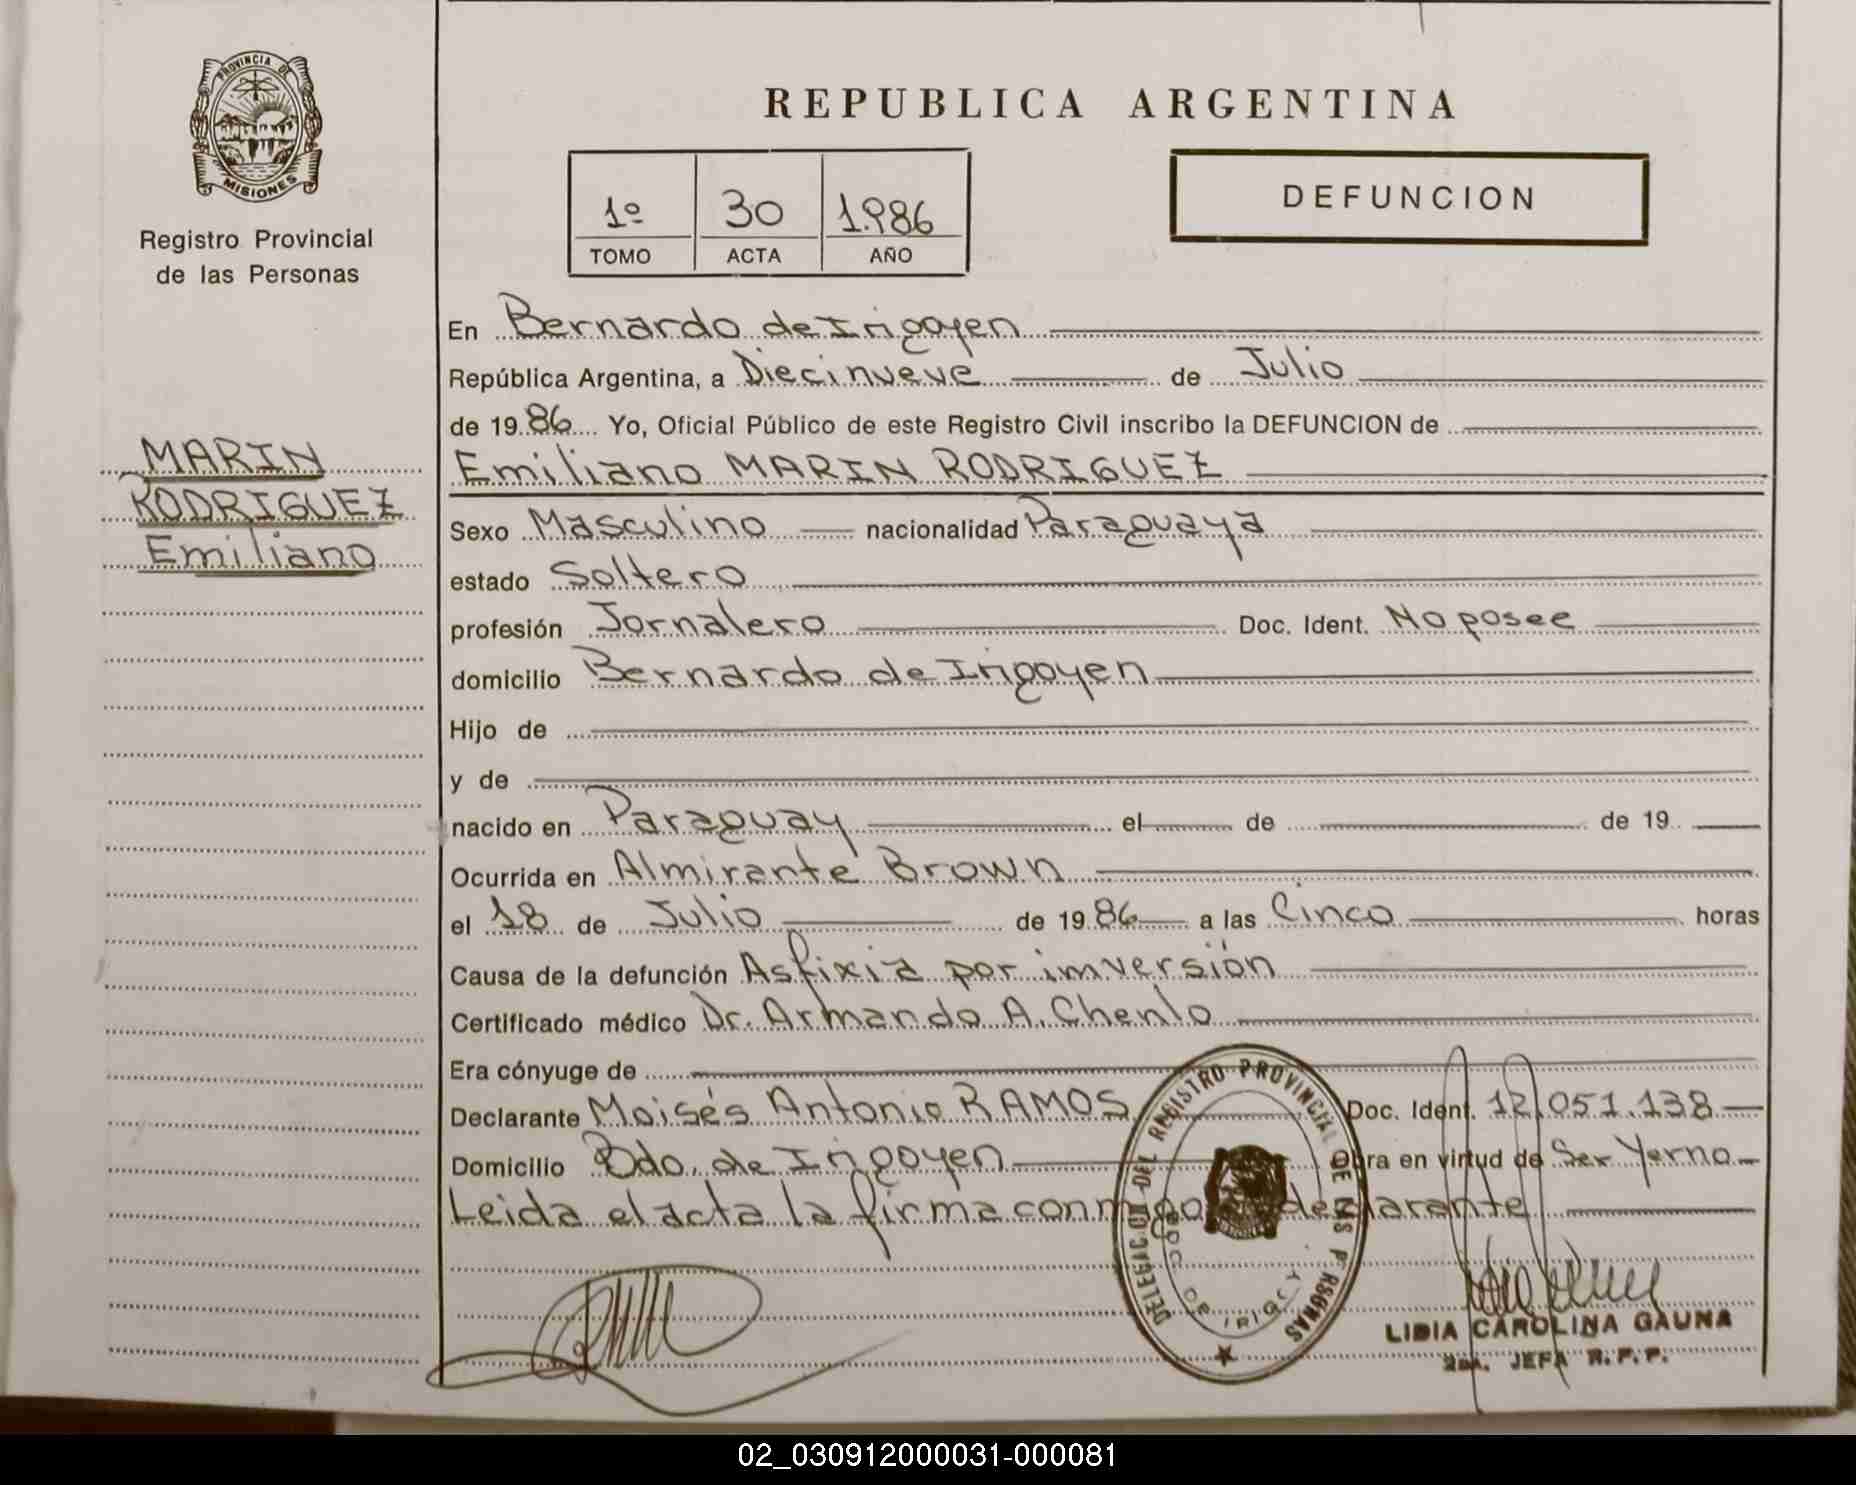 PROVINCIA DE
MISIONES
Registro Provincial
de las Personas
MARIN
RODRIGUEZ
Emiliano
REPUBLICA ARGENTINA
1º 30 1.986
TOMO ACTA AÑO
DEFUNCION
En Bernardo de Irigoyen
República Argentina, a Diecinueve de Julio
de 19 86 Yo, Oficial Público de este Registro Civil inscribo la DEFUNCION de
Emiliano MARIN RODRIGUEZ
Sexo Masculino nacionalidad Paraguaya
estado Soltero
profesión Jornalero Doc. Ident. No posee
domicilio Bernardo de Irigoyen
Hijo de
y de
nacido en Paraguay el de de 19
Ocurrida en Almirante Brown
el 18 de Julio de 19 86 a las Cinco horas
Causa de la defunción Asfixia por imversión
Certificado médico Dr. Armando A. Chenlo
Era cónyuge de
Declarante Moisés Antonio RAMOS Doc. Ident. 12.051.138
Domicilio Bdo. de Irigoyen Obra en virtud de Ser Yerno
Leida el acta la firma conmigo el declarante
DELEGACION DEL REGISTRO PROVINCIAL DE LAS PERSONAS
BDO. DE IRIGOY
LIDIA CAROLINA GAUNA
2da. JEFA R.P.P.
02_030912000031-000081